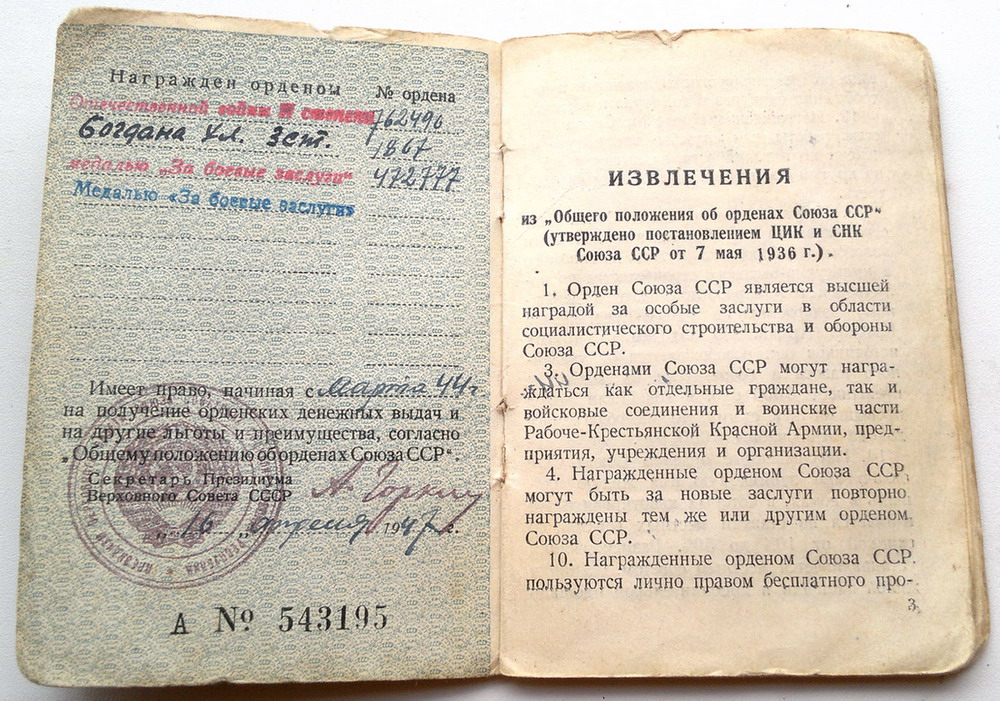 Награжден орденом № ордена
Отечественной войны II степени 762490
Богдана Хл. 3 ст. 1867
медалью „За боевые заслуги" 472777
Медалью «За боевые заслуги»
Имеет право, начиная с Марта 44 г
на получение орденских денежных выдач и
на другие льготы и преимущества, согласно
„Общему положению об орденах Союза ССР".
Секретарь Президиума
Верховного Совета СССР А. Горкин
„16" апреля 1947 г.
А № 543195
ИЗВЛЕЧЕНИЯ
из „Общего положения об орденах Союза ССР"
(утверждено постановлением ЦИК и СНК
Союза ССР от 7 мая 1936 г.).
1. Орден Союза ССР является высшей
наградой за особые заслуги в области
социалистического строительства и обороны
Союза ССР.
3. Орденами Союза ССР могут награ-
ждаться как отдельные граждане, так и
войсковые соединения и воинские части
Рабоче-Крестьянской Красной Армии, пред-
приятия, учреждения и организации.
4. Награжденные орденом Союза ССР
могут быть за новые заслуги повторно
награждены тем же или другим орденом
Союза ССР.
10. Награжденные орденом Союза ССР
пользуются лично правом бесплатного про-
3